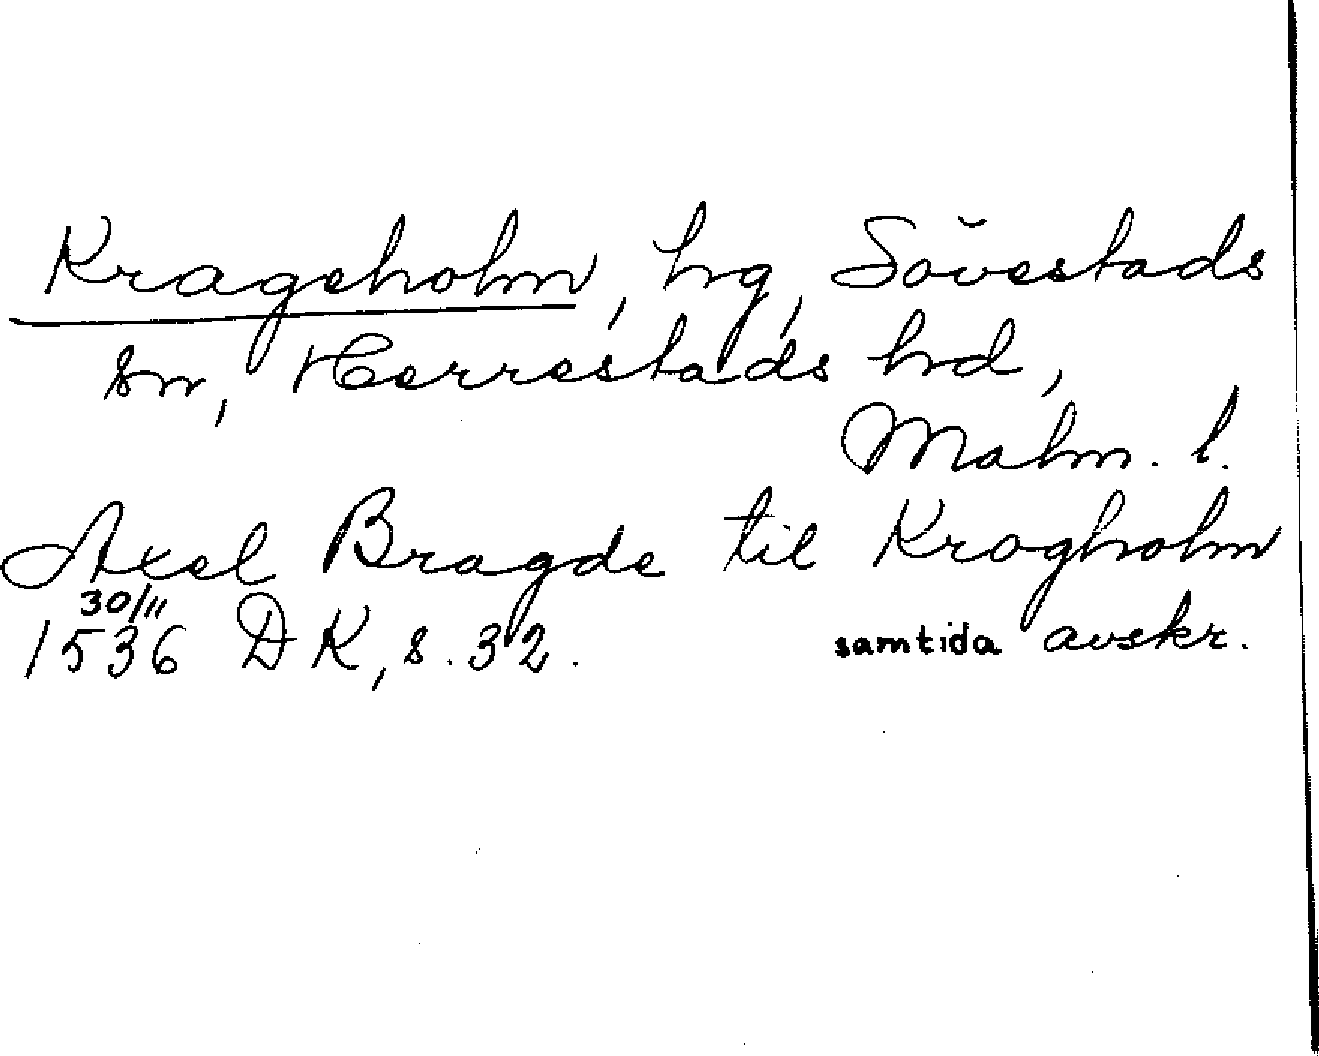 Krageholm, hg, Sövestads
sn, Herrestads hd,
Malm. l.
Axel Bragde til Kragholm
30/11
1536 DK, s. 32. samtida avskr.